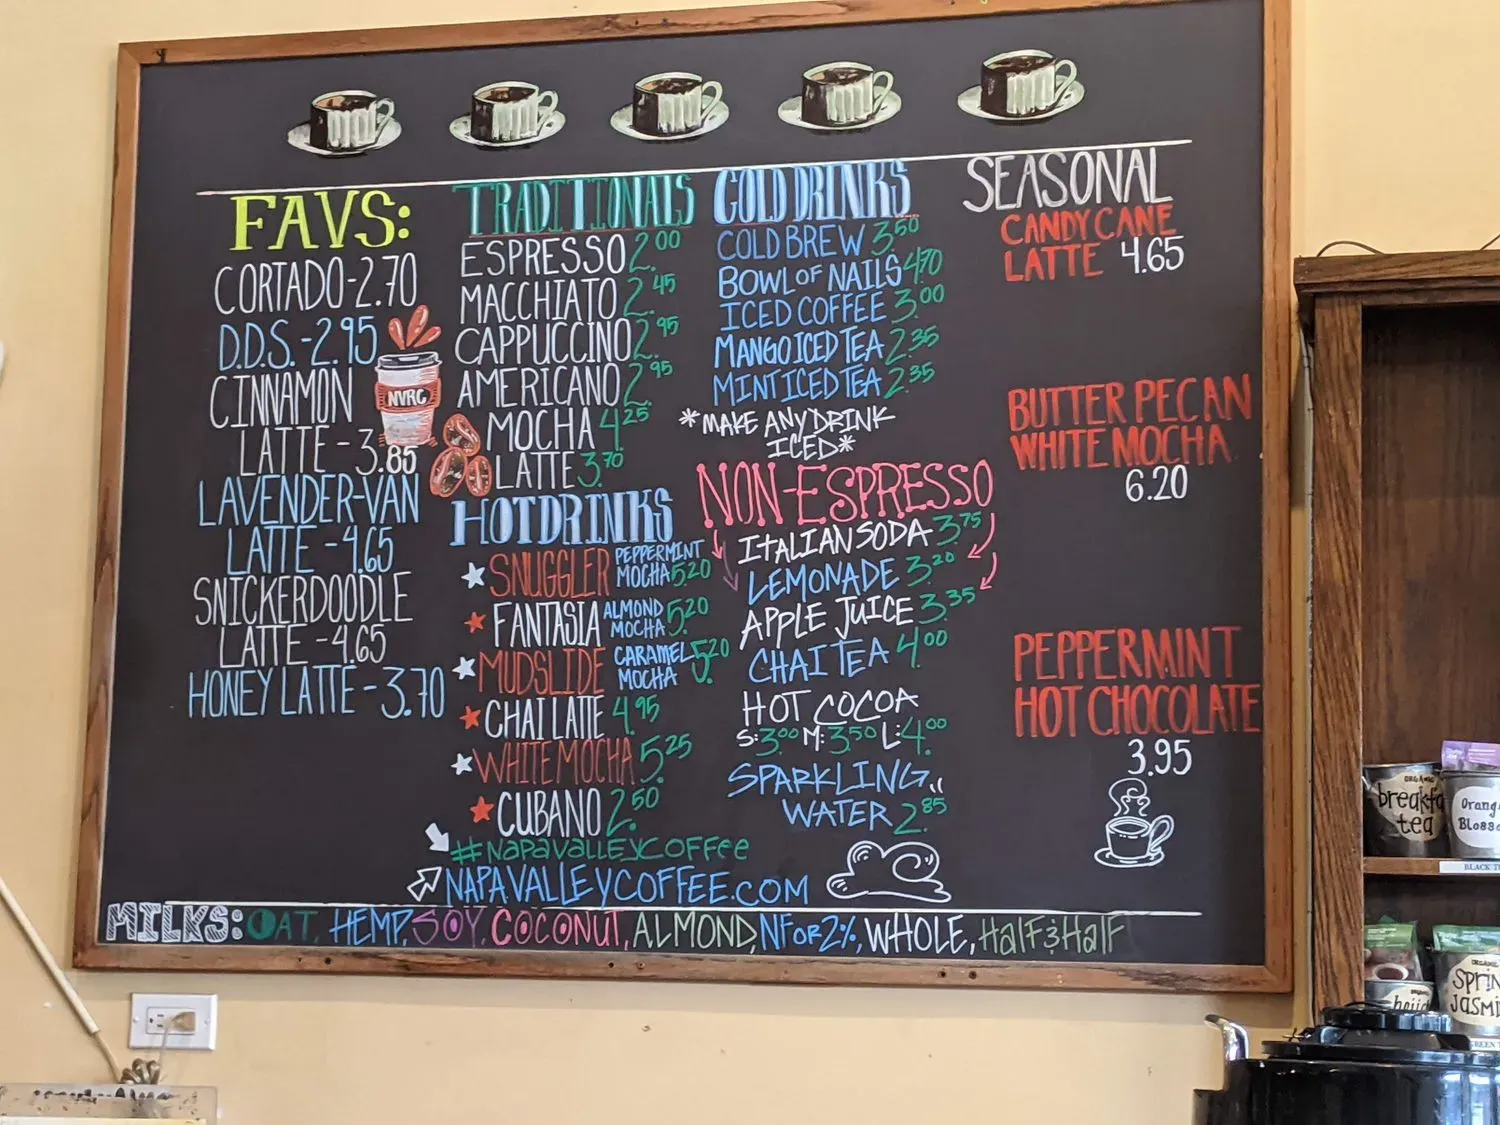 FAVS:
CORTADO-2.70
D.D.S.-2.95
CINNAMON
LATTE-3.85
LAVENDER-VAN
LATTE-4.65
SNICKERDOODLE
LATTE-4.65
HONEY LATTE-3.70
NVRC
TRADITIONALS
ESPRESSO 2.00
MACCHIATO 2.45
CAPPUCCINO 2.95
AMERICANO 2.95
MOCHA 4.25
LATTE 3.70
HOT DRINKS
SNUGGLER PEPPERMINT
MOCHA 5.20
FANTASIA ALMOND
MOCHA 5.20
MUDSLIDE CARAMEL
MOCHA 5.20
CHAI LATTE 4.95
WHITE MOCHA 5.25
CUBANO 2.50
#NAPAVALLEYCOFFEE
NAPAVALLEYCOFFEE.COM
COLD DRINKS
COLD BREW 3.50
BOWL OF NAILS 4.70
ICED COFFEE 3.00
MANGO ICED TEA 2.35
MINT ICED TEA 2.35
*MAKE ANY DRINK
ICED*
NON-ESPRESSO
ITALIAN SODA 3.75
LEMONADE 3.20
APPLE JUICE 3.35
CHAI TEA 4.00
HOT COCOA
S:3.00 M:3.50 L:4.00
SPARKLING
WATER 2.85
SEASONAL
CANDY CANE
LATTE 4.65
BUTTER PECAN
WHITE MOCHA
6.20
PEPPERMINT
HOT CHOCOLATE
3.95
MILKS: OAT, HEMP, SOY, COCONUT, ALMOND, NF OR 2%, WHOLE, HALF & HALF
ORGANIC
breakfa
tea
Orang
Bloss
BLACK T
ORGANIC
SPRIN
JASMI
GREEN T